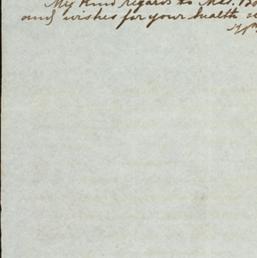 My kind regards to Mrs. Bo
and wishes for your health